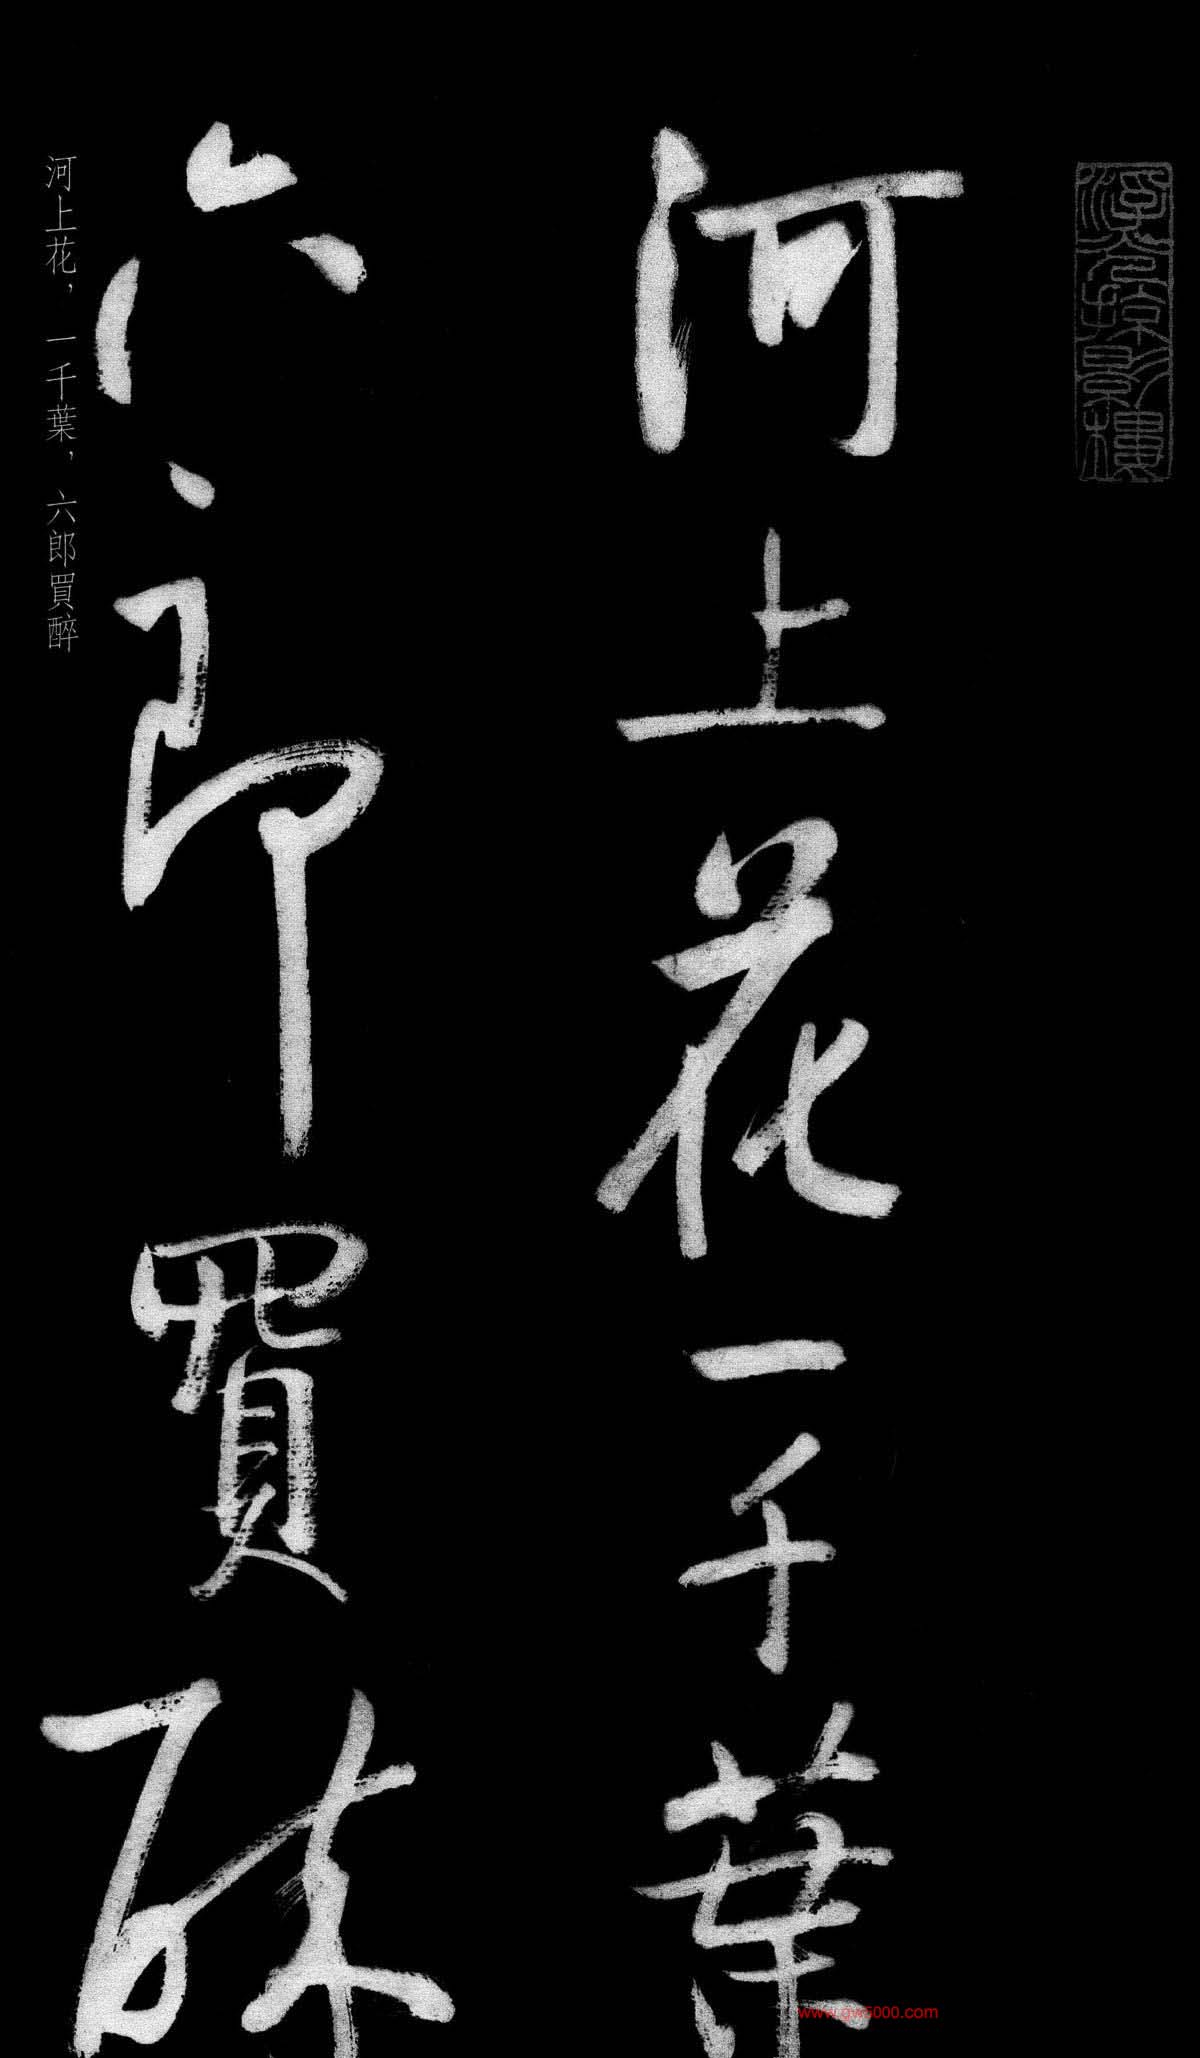 浮光掠影樓
河上花一千葉
六郎買醉
河上花，一千葉，六郎買醉
www.gx5000.com